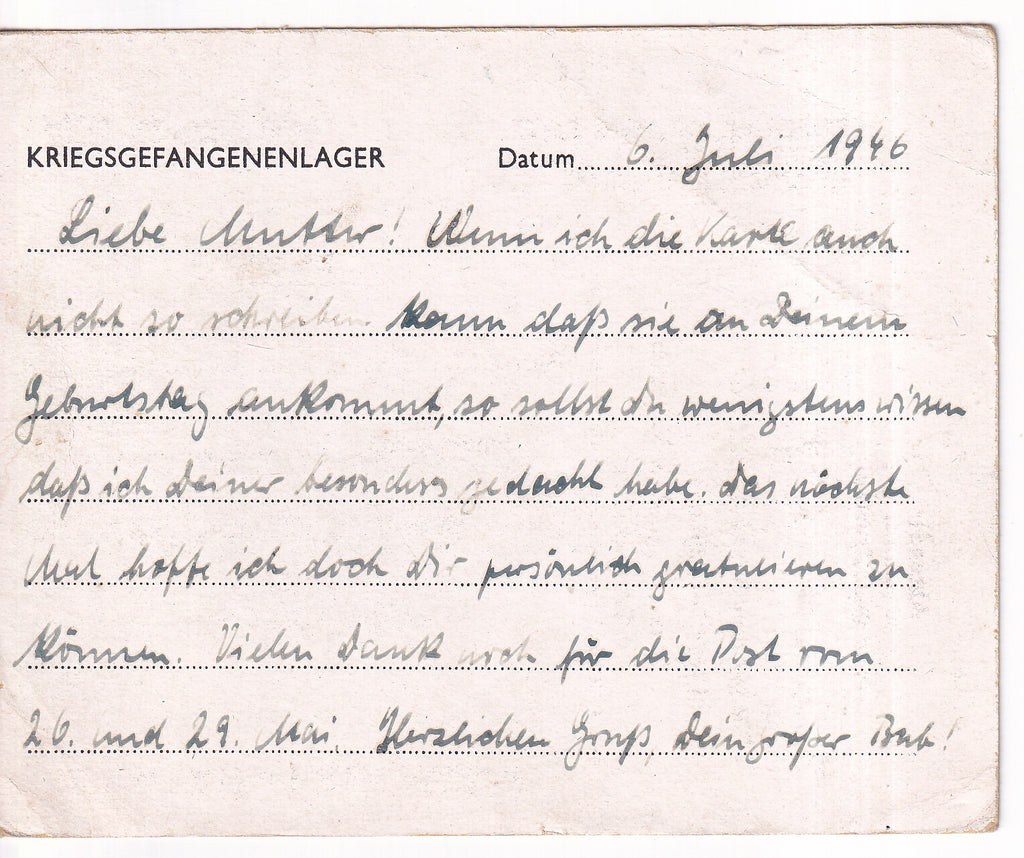 KRIEGSGEFANGENENLAGER Datum 6. Juli 1946
Liebe Mutter! Wenn ich die Karte auch
nicht so schreiben kann daß sie an Deinem
Geburtstag ankommt, so sollst du wenigstens wissen
daß ich Deiner besonders gedacht habe. Das nächste
Mal hoffe ich doch Dir persönlich gratulieren zu
können. Vielen Dank noch für die Post vom
26. und 29. Mai. Herzlichen Gruß, Dein großer Bub!